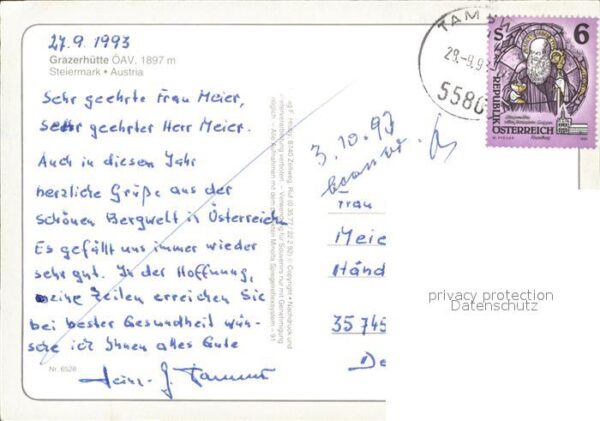 27.9.1993
Grazerhütte ÖAV. 1897 m
Steiermark • Austria
Sehr geehrte Frau Meier,
Sehr geehrter Herr Meier.
Auch in diesem Jahr
herzliche Grüße aus der
schönen Bergwelt in Österreich
Es gefällt uns immer wieder
sehr gut. In der Hoffnung,
meine Zeilen erreichen Sie
bei bester Gesundheit wün-
sche ich Ihnen alles Gute
Heinz-J.
Nr. 6528
3.10.93
TAMS
28.-9.93
5580
S 6
REPUBLIK
ÖSTERREICH
Frau
Meie
Händ
35745
De
privacy protection
Datenschutz